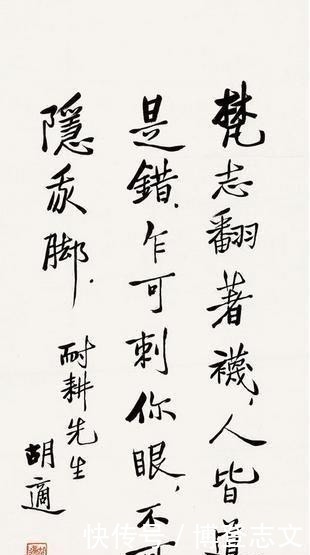 梵志翻著襪，人皆
是錯．乍可刺你眼，不
隱我脚．
耐耕先生
胡適
快传号 / 博登志文